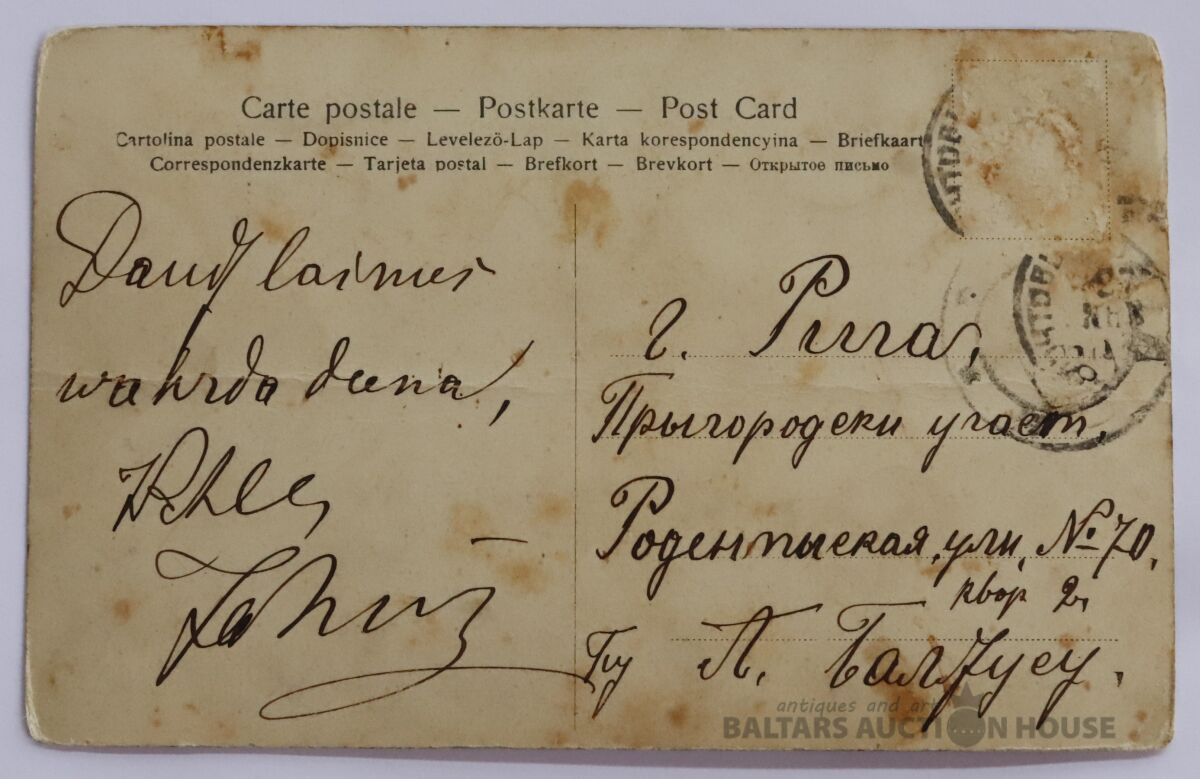 Carte postale — Postkarte — Post Card
Cartolina postale — Dopisnice — Levelezö-Lap — Karta korespondencyjna — Briefkaart
Correspondenzkarte — Tarjeta postal — Brefkort — Brevkort — Открытое письмо
Daudz laimes
wahrda deena,
г. Рига,
Прыгородски участ,
Роденпыская ули, № 70,
квор 2,
Гну Л. Балзусу.
antiques and art
BALTARS AUCTION HOUSE